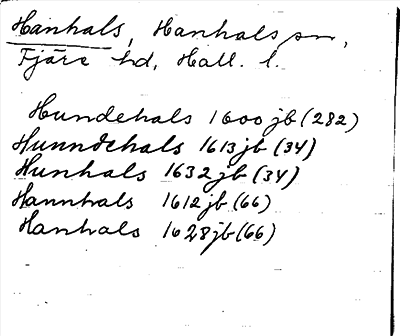 Hanhals, Hanhals sn,
Fjäre hd, Hall. l.
Hundehals 1600 jb (282)
Hunndehals 1613 jb (34)
Hunhals 1632 jb (34)
Hannhals 1612 jb (66)
Hanhals 1628 jb (66)